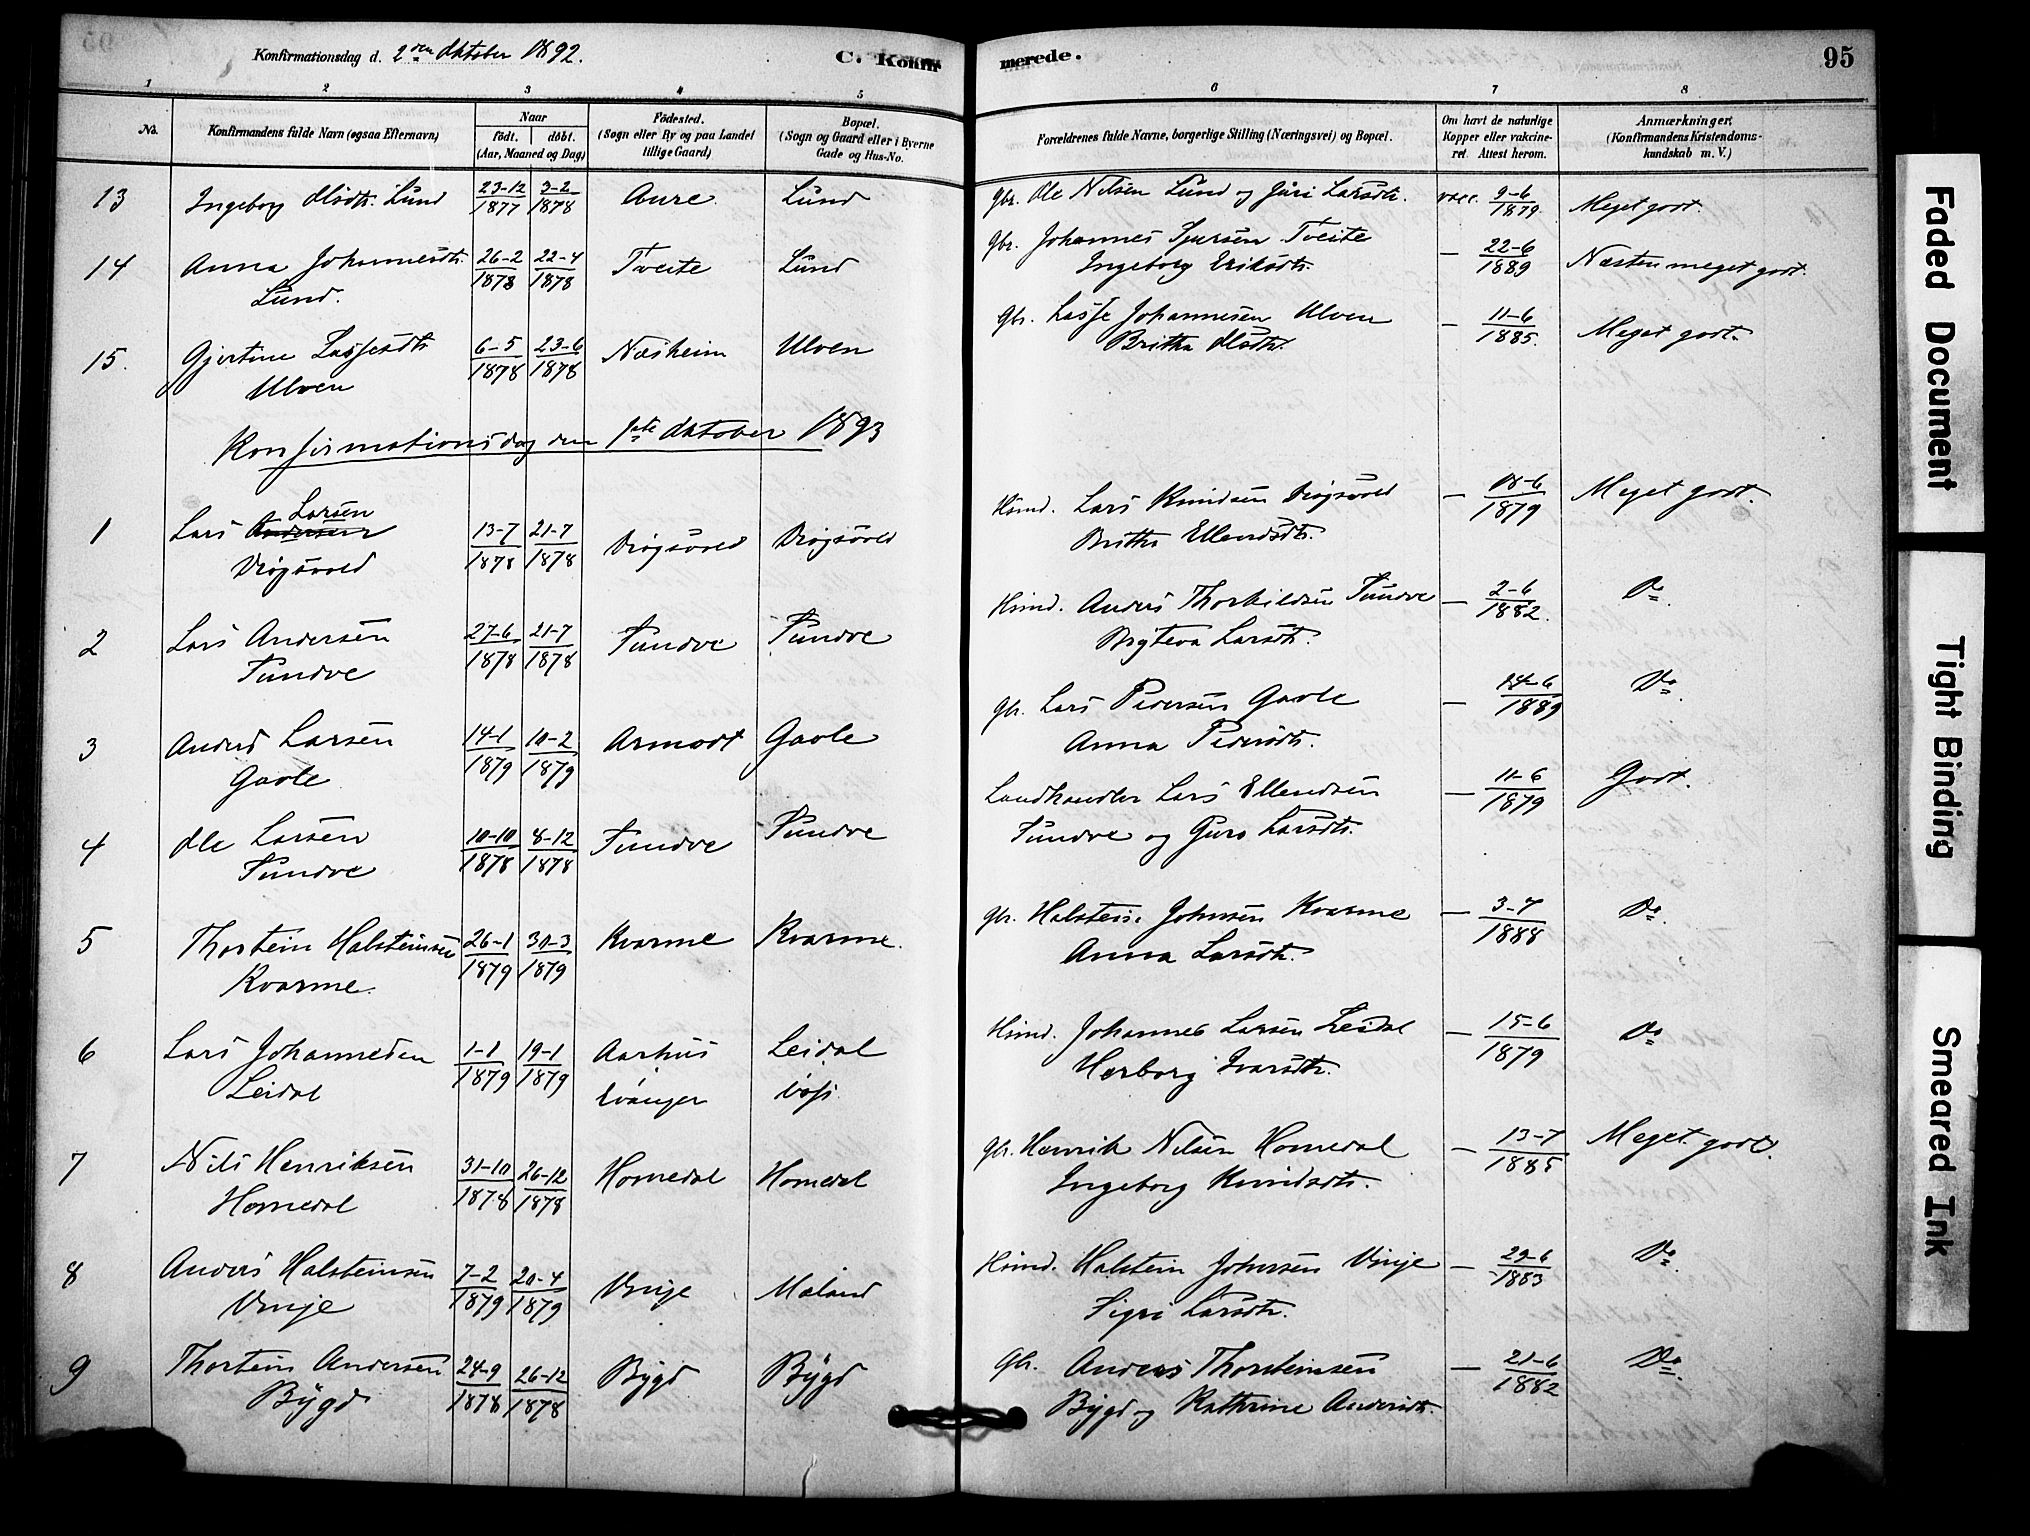 Konfirmationsdag d. 2den Oktober 1892.
C. Konfir
merede.
95
1 2 3 4 5 6 7 8
No.
Konfirmandens fulde Navn (ogsaa Efternavn)
Naar
født. døbt.
(Aar, Maaned og Dag)
Fødested.
(Sogn eller By og paa Landet
tillige Gaard)
Bopæl.
(Sogn og Gaard eller i Byerne
Gade og Hus-No.
Forældrenes fulde Navne, borgerlige Stilling (Næringsvei) og Bopæl.
Om havt de naturlige
Kopper eller vakcine-
ret. Attest herom.
Anmærkninger.
(Konfirmandens Kristendoms-
kundskab m. V.)
13 Ingeborg Olsdtr. Lund 23-12 1877 3-2 1878 Aure Lund Gbr. Ole Nilsen Lund og Guri Larsdtr. vacc. 9-6 1879. Meget godt.
14 Anna Johannesdtr. 26-2 1878 22-4 1878 Tveite Lund Gbr. Johannes Sjursen Tveite – 22-6 1889 Næsten meget godt.
Lund. Ingeborg Eriksdtr.
15. Gjertine Lassesdtr. 6-5 1878 23-6 1878 Næsheim Ulven Gbr. Lasse Johannesen Ulven – 11-6 1885. Meget godt.
Ulven Britha Olsdtr.
Konfirmationsdag den 1ste Oktober 1893
1 Lars Andersen Larsen 13-7 1878 21-7 1878 Drøgsvold Drøgsvold Hsmd. Lars Knudsen Drøgsvold – 18-6 1879 Meget godt.
Drøgsvold Britha Ellendsdtr.
2 Lars Andersen 27-6 1878 21-7 1878 Tundve Tundve Hsmd. Anders Thorkildsen Tundve – 2-6 1882. Do
Tundve Bryteva Larsdtr.
3 Anders Larsen 14-1 1879 10-2 1879 Armodt Gavle Gbr. Lars Pedersen Gavle – 14-6 1889 Do
Gavle Anna Pedersdtr.
4 Ole Larsen 10-10 1878 8-12 1878 Tundve Tundve Landhandler Lars Ellendsen – 11-6 1879 Godt.
Tundve Tundve og Guro Larsdtr.
5 Thorstein Halsteinsen 26-1 1879 30-3 1879 Kvarme Kvarme. Gbr. Halstein Johnsen Kvarme – 3-7 1888 Do
Kvarme. Anna Larsdtr.
6 Lars Johannesen 1-1 1879 19-1 1879 Aarhus Leidal Hsmd. Johannes Larsen Leidal – 15-6 1879 Do
Leidal Evanger Voss. Herborg Ivarsdtr.
7 Nils Henriksen 31-10 1878 26-12 1878 Homedal Homedal Gbr. Henrik Nilsen Homedal – 13-7 1885 Meget godt.
Homedal Ingeborg Knudsdtr.
8 Anders Halsteinsen 7-2 1879 20-4 1879 Vinje Mæland Hsmd. Halstein Johnsen Vinje – 29-6 1883 Do
Vinje Sigri Larsdtr.
9 Thorstein Andersen 24-9 1878 26-12 1878 Bygd Bygd Gbr. Anders Thorsteinsen – 21-6 1882 Do
Bygd Bygd og Kathrine Andersdtr.
Faded Document
Tight Binding
Smeared Ink